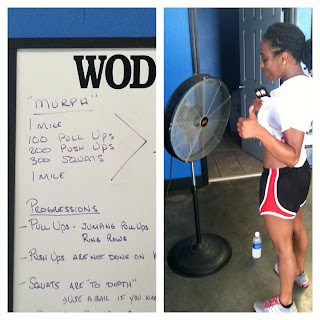 WOD
"MURPH"
1 MILE
100 PULL UPS
200 PUSH UPS
300 SQUATS
1 MILE
PROGRESSIONS
- PULL UPS - JUMPING PULL UPS
RING ROWS
- PUSH UPS ARE NOT DONE ON
- SQUATS ARE "TO DEPTH"
USE A BALL IF YOU NEE